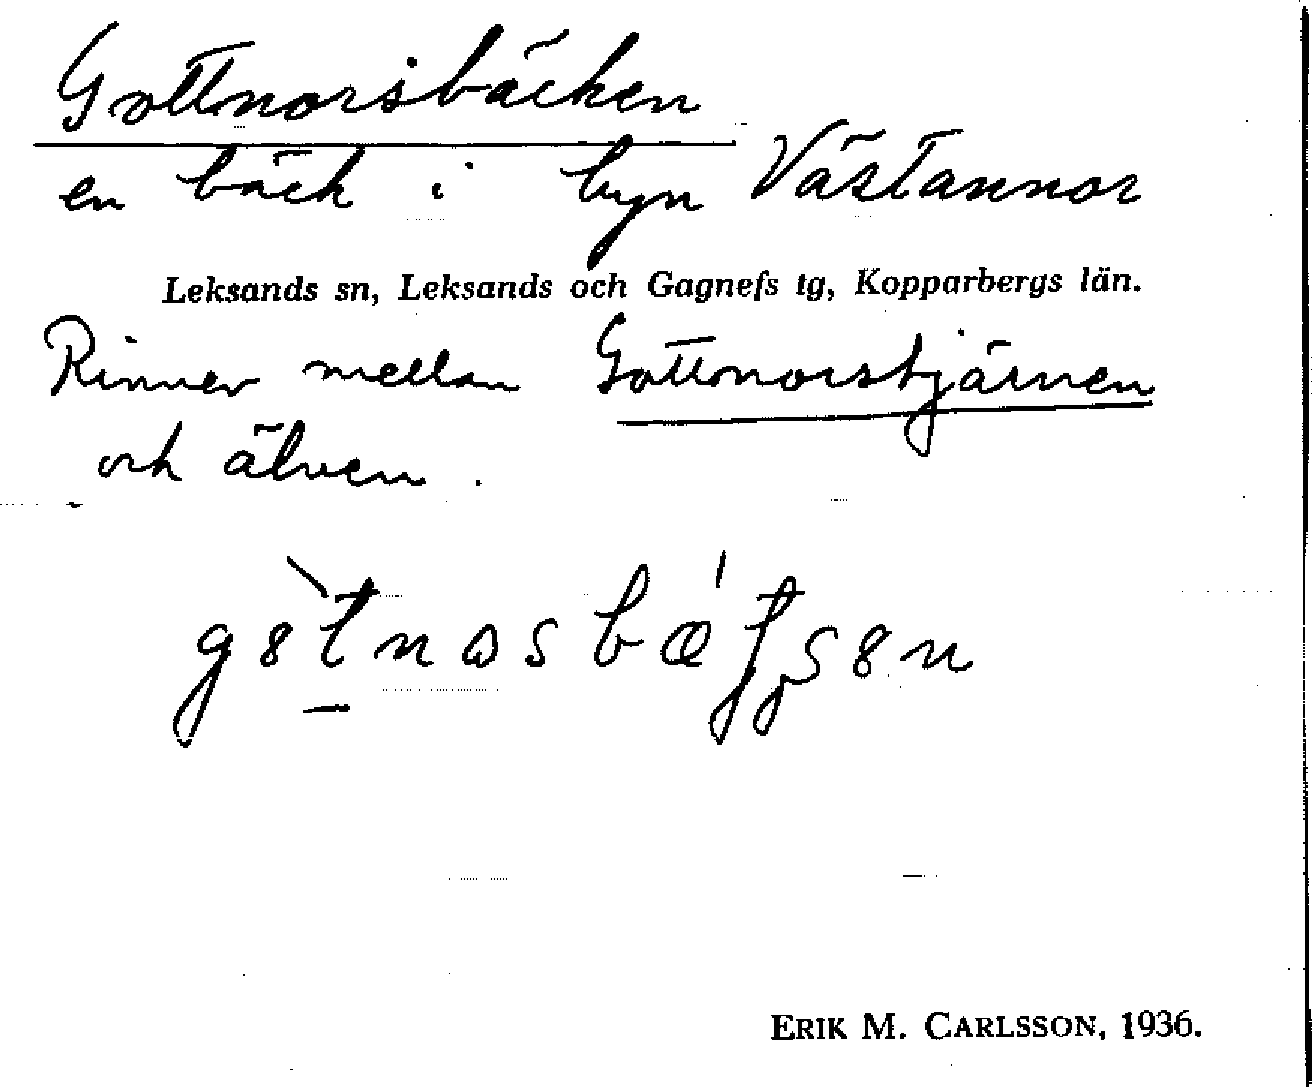 Gottnorsbäcken
en bäck i byn Västannor
Leksands sn, Leksands och Gagnefs tg, Kopparbergs län.
Rinner mellan Gottnorstjärnen
och älven.
ERIK M. CARLSSON, 1936.